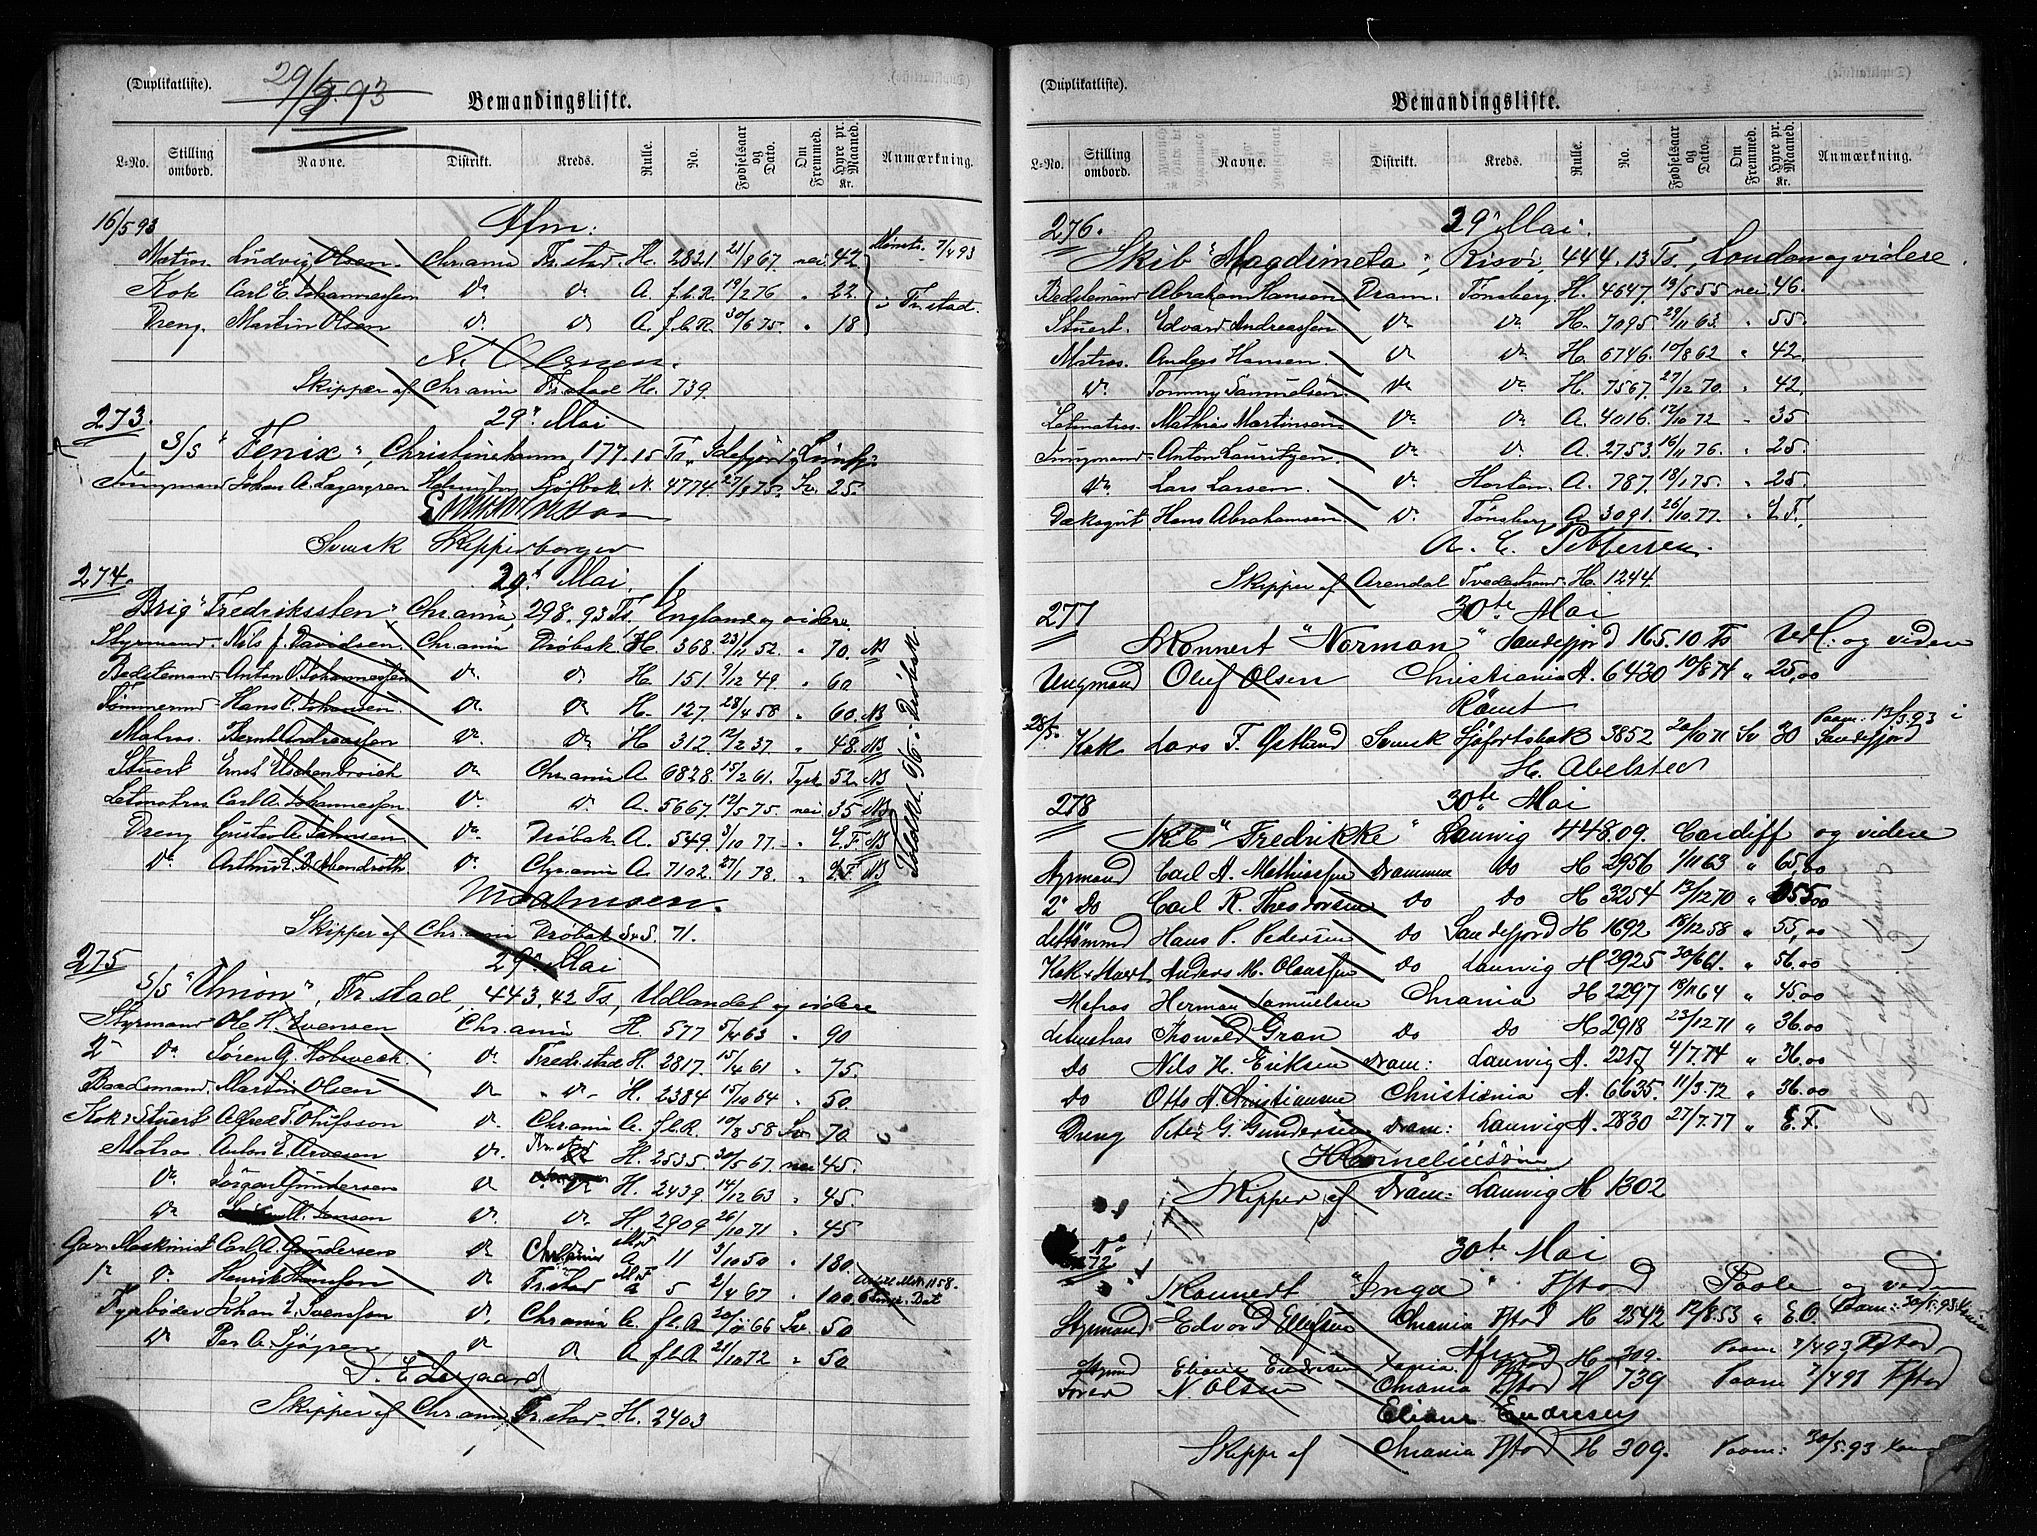 (Duplikatliste). 29/5 93
Bemandingsliste.
L-No. Stilling ombord. Navne. Distrikt. Kreds. Rulle. No. Fødselsaar og Dato. Om Fremmed. Hyre pr. Maaned. Kr. Anmærkning.
16/5 93 Afm:
Matros Ludvig Olsen Chr.ania Fr.stad H. 2821 21/8 67 nei 42 Mønst. 7/4 93
Kok Carl E. Johannessen do do A. f.l.R. 19/2 76 " 22 i Fr.stad.
Dreng. Martin Olsen d. do A. f.l.R. 30/6 75 " 18
N. Olsen.
Skipper af Chr.ania Fr.stad H. 739.
273. 29' Mai
S/S "Fenix", Christinehamn 177.15 Ts,
Jungmand Johan A. Lagergren N. 4774 27/8 75. Sv. 25.
Svensk Skipperborger
274. 29' Mai
Brig "Fredriksten", Chr.ania, 298.93 Ts, England og videre.
Styrmand. Nils J. Davidsen Chr.ania Drøbak H. 368 23/11 52. " 70. NB
Bedstemand Anton O. Johannessen do d. H. 151. 9/12 49. " 60
Tømmermd Hans C. Johansen do do H. 127. 28/4 58 " 60. NB
Matros. Bernt Andreassen do do H. 312. 12/2 37. " 48. NB
Stuert Ernst Eschenbroich do Chr.ania A. 6828. 15/2 61. Tysk 52. NB
Letmatros Carl A. Johannessen. d. d. A. 5667. 12/5 75. nei 35 NB
Dreng Gustav A. Johnsen do Drøbak A. 549. 3/10 77. " E.F. NB
do Arthur L. B. Abendroth d. Chr.ania A. 7102. 27/1 78. " E.F. NB
Skipper af Chr.ania Drøbak S&S. 71.
275 29' Mai
S/S "Union", Fr.stad, 443,42 Ts, Udlandet og videre
Styrmand Ole H. Evensen Chr.ania H. 577 5/4 63 " 90
2' do Søren G. Hobæck. d. Fredrstad H. 2817. 15/4 61 " 75.
Baadsmand. Martin Olsen d. " d. H. 2384 15/10 64 " 50.
Kok & Stuert Alfred T. Olufsson d. Chr.ania A. f.l.R. 10/8 58 Sv. 70.
Matros Anton E. Arvesen d. Fr.stad H. 2535. 30/5 67. nei 45.
do Gundersen d do H. 2439 14/12 63 " 45.
do M. Jensen d. do H. 2909 26/10 71 " 45
1ste Maskinist Carl A. Gundersen d Chr.ania Mst A 11 3/10 50 " 180.
2' d. Henrik Hansson d Fr.stad Mst A 5 2/4 67 " 100.
Fyrbøder Johan E. Svensson d. Chr.ania A. f.l.R 20/8 66 Sv. 50
do Per A. Sjögren d d A f.l.R. 21/10 72 " 50
Skipper af Chr.ania Fr.stad H. 2403
(Duplikatliste).
Bemandingsliste.
L-No. Stilling ombord. Navne. Distrikt. Kreds. Rulle. No. Fødselsaar og Dato. Om Fremmed. Hyre pr. Maaned. Kr. Anmærkning.
276. 29' Mai.
Skib "Magdimeta", Risør, 444.13 Ts, London og videre.
Bedstemand Abraham Hansen Dram. Tønsberg H. 4647. 19/5 55 nei 46.
Stuert. Edvard Andreassen do do H. 7095. 29/11 63. " 55.
Matros. Anders Hansen do do H. 6746. 10/8 62 " 42.
do Tommy Samuelsen do do H. 7567. 27/12 70. " 42
Letmatros Mathias Martinsen do do A. 4016. 12/10 72 " 35
Jungmand Anton Lauritzen. do d. A. 2753. 16/11 76. " 25.
do Lars Larsen do Horten. A. 787. 18/1 75. " 25
Dæksgut. Hans Abrahamsen do Tønsberg A. 3091. 26/10 77. " E.F.
A. C. Pettersen.
Skipper af Arendal Tvedestrand H. 1244.
277 30te Mai
Skonnert "Norman" Sandefjord 165.10 Ts og videre
Ungmand Oluf Olsen Christiania A. 6430 10/8 74 " 25,00
Rømt
28/5 Kok Lars F. Østlund Svensk Sjöfartsbok 3852 20/10 71 Sv 30 Paam: 13/3 93 i Sandefjord
H. Abelsted
278 30te Mai
Skib "Fredrikke" Laurvig 448.09 Cardiff og videre
Styrmand Carl A. Mathiassen Drammen do H 2956 1/11 63 " 65,00
2' do Carl R. Theodorsen do do H 3254 13/12 70 " 55,00
Hans P. Pedersen do Sandefjord H 1692 18/12 58 " 55,00
Kok & Stuert Anders M. Olaussen do Laurvig H 2925 30/6 61. " 56.00
Matros Herman Samuelsen Chrania H 2297 19/11 64 " 45.00
Letmatros Thorvald Gran do do H 2918 23/12 71 " 36.00
do Nils H. Eriksen Dram: Laurvig A. 2257 4/7.74 " 36.00
do Otto A Christiansen Christiania A. 6635. 11/3.72 " 36.00
Dreng Peter G. Gundersen Dram: Laurvig A. 2830 27/7.77 " E.F.
H Corneliussen
Skipper af Dram: Laurvig H 1302
30te Mai
272
Skonnert "Inga" Fstad Poole og videre
Styrmand Edvard Ellefsen Chrania Fstad H 2542 12/8.53 " E.O. Paam: 30/5.93
Afm
Styrmd Eliane Endresen Crania Fstad H 309. Paam 7/4 93 Fstad
Fører N Olsen Chrania Fstad H 739 Paam 7/4 93 Fstad
Eliane Endresen
Skipper af Chrania Fstad H 309. Paam: 30/5.93